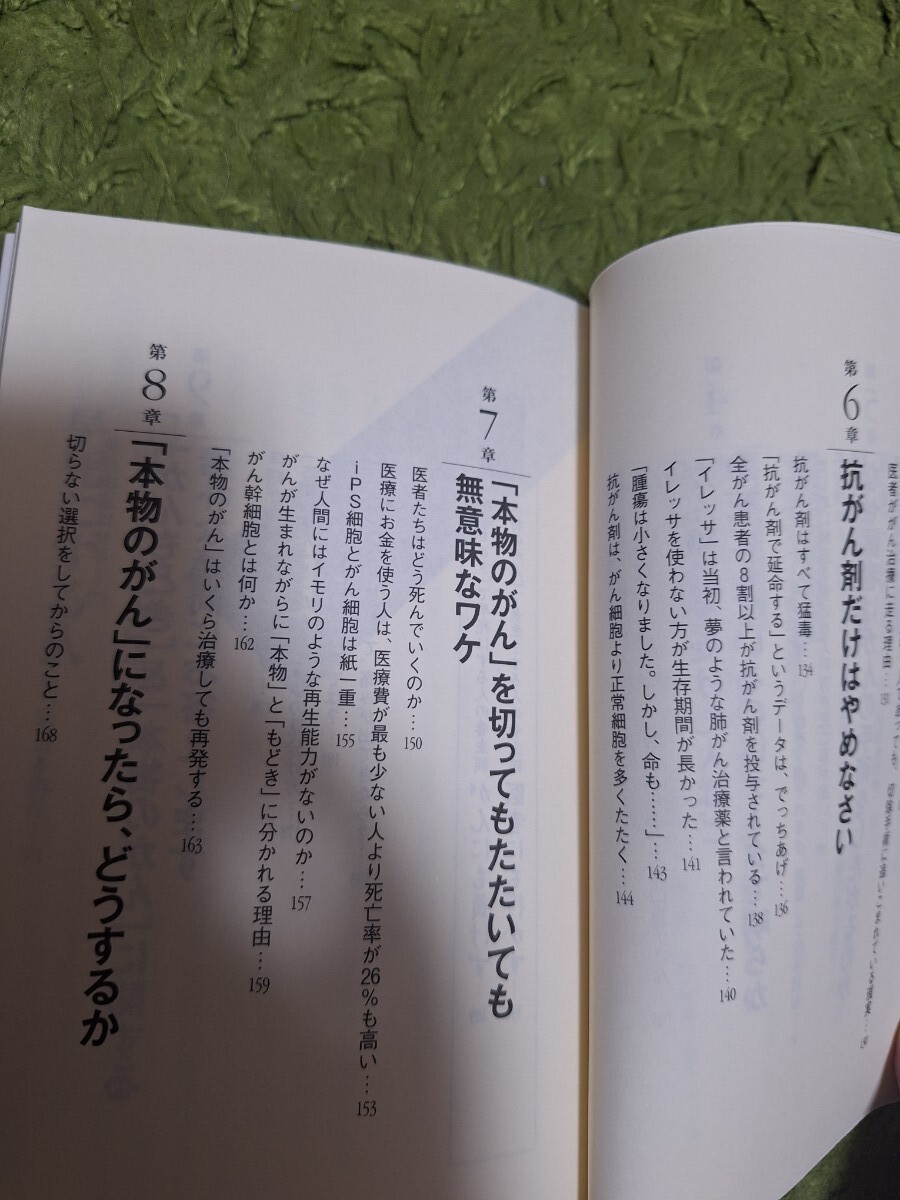 医者ががん治療に走る理由…131
第6章
抗がん剤だけはやめなさい
抗がん剤はすべて猛毒…134
「抗がん剤で延命する」というデータは、でっちあげ…136
全がん患者の8割以上が抗がん剤を投与されている…138
「イレッサ」は当初、夢のような肺がん治療薬と言われていた…140
イレッサを使わない方が生存期間が長かった…141
「腫瘍は小さくなりました。しかし、命も……」…143
抗がん剤は、がん細胞より正常細胞を多くたたく…144
第7章
「本物のがん」を切ってもたたいても
無意味なワケ
医者たちはどう死んでいくのか…150
医療にお金を使う人は、医療費が最も少ない人より死亡率が26%も高い…153
iPS細胞とがん細胞は紙一重…155
なぜ人間にはイモリのような再生能力がないのか…157
がんが生まれながらに「本物」と「もどき」に分かれる理由…159
がん幹細胞とは何か…162
「本物のがん」はいくら治療しても再発する…163
第8章
「本物のがん」になったら、どうするか
切らない選択をしてからのこと…168